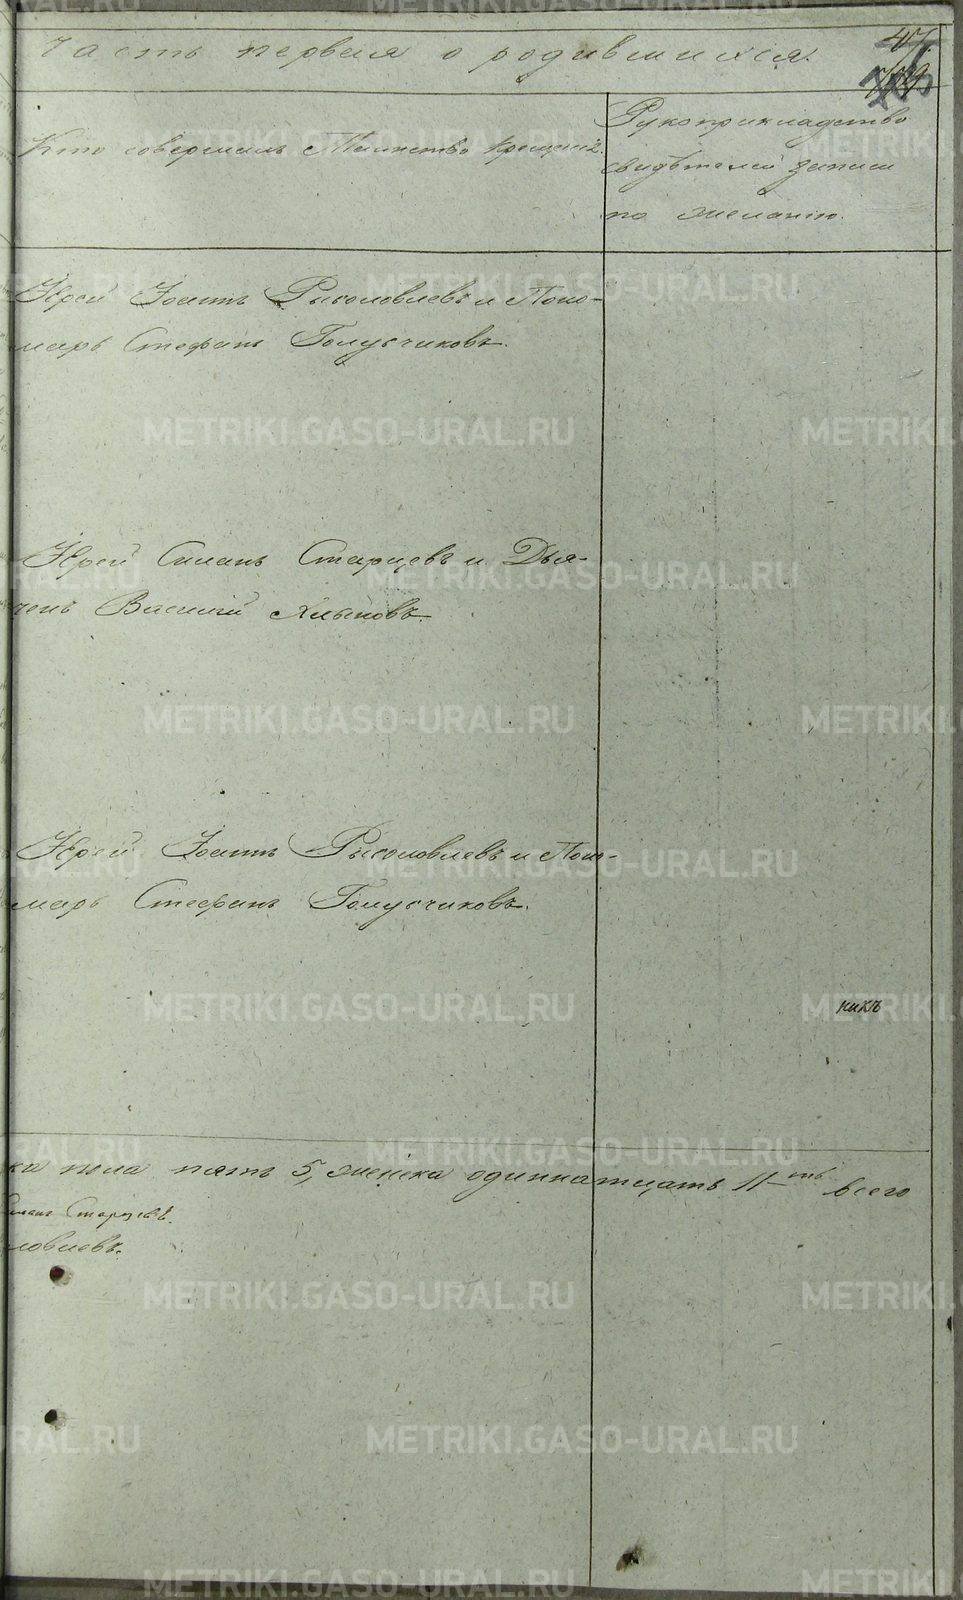 Часть первая о родившихся.
47.
Кто совершалъ Таинство крещенія.
Рукоприкладство
свидѣтелей записи
по желанію.
Іерей Іоаннъ и Поно-
марь Стефанъ Голубчиковъ.
Іерей Силанъ Старцевъ и Дья-
чекъ Василій Хлыновъ.
Іерей Іоаннъ и Поно-
марь Стефанъ Голубчиковъ.
нихъ
ка пола пять 5, женска одиннатцать 11-ть всего
Старцевъ.
ловлевъ.
METRIKI.GASO-URAL.RU